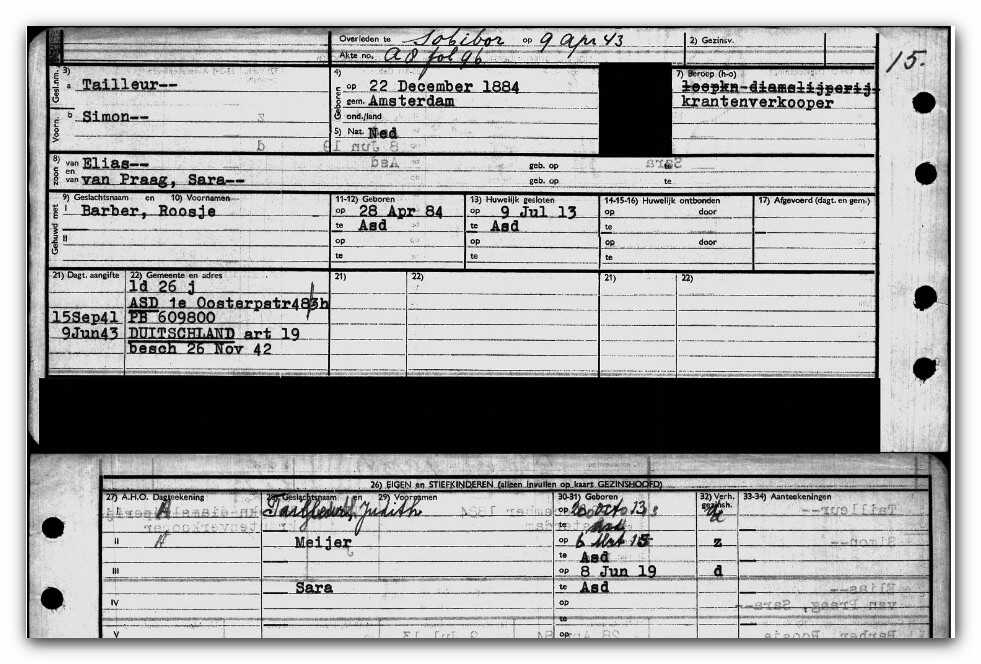 Overleden te Sobibor op 9 Apr 43 2) Gezinsv.
Akte no. A8 fol 96
15.
3) 4) 7) Beroep (h-o)
Gesl.nm. a Tailleur-- Geboren op 22 December 1884 loopkn diamslijperij
gem. Amsterdam krantenverkooper
Voorn. b Simon-- ond./land
5) Nat. Ned
8) zoon van Elias-- geb. op te
en
van van Praag, Sara-- geb. op te
9) Geslachtsnaam en 10) Voornamen 11-12) Geboren 13) Huwelijk gesloten 14-15-16) Huwelijk ontbonden 17) Afgevoerd (dagt. en gem.)
Gehuwd met I Barber, Roosje op 28 Apr 84 op 9 Jul 13 op door
te Asd te Asd te
II op op op door
te te te
21) Dagt. aangifte 22) Gemeente en adres 21) 22) 21) 22)
ld 26 j
ASD 1e Oosterpstr 483h
15Sep41 PB 609800
9Jun43 DUITSCHLAND art 19
besch 26 Nov 42
26) EIGEN en STIEFKINDEREN (alleen invullen op kaart GEZINSHOOFD)
27) A.H.O. Dagteekening 28) Geslachtsnaam en 29) Voornamen 30-31) Geboren 32) Verh. gezinsh. 33-34) Aantekeningen
A Judith op Octo 13 d
te Asd
II A Meijer op 6 Mrt 15 z
te Asd
III op 8 Jun 19 d
Sara te Asd
IV op
te
V op